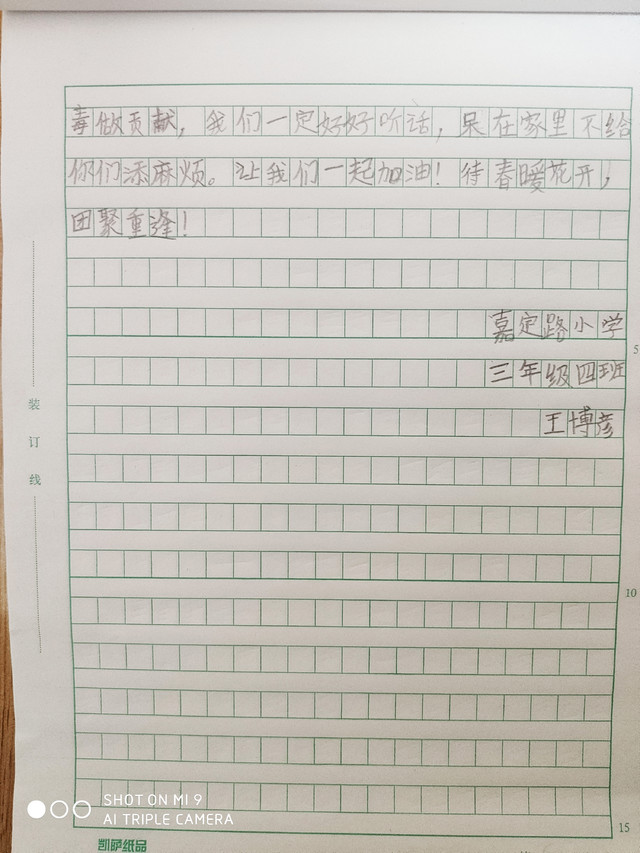 毒做贡献，我们一定好好听话，呆在家里不给
你们添麻烦。让我们一起加油！待春暖花开，
团聚重逢！
嘉定路小学
5
三年级四班
装
王博彦
订
线
10
SHOT ON MI 9
AI TRIPLE CAMERA
15
凯萨纸品